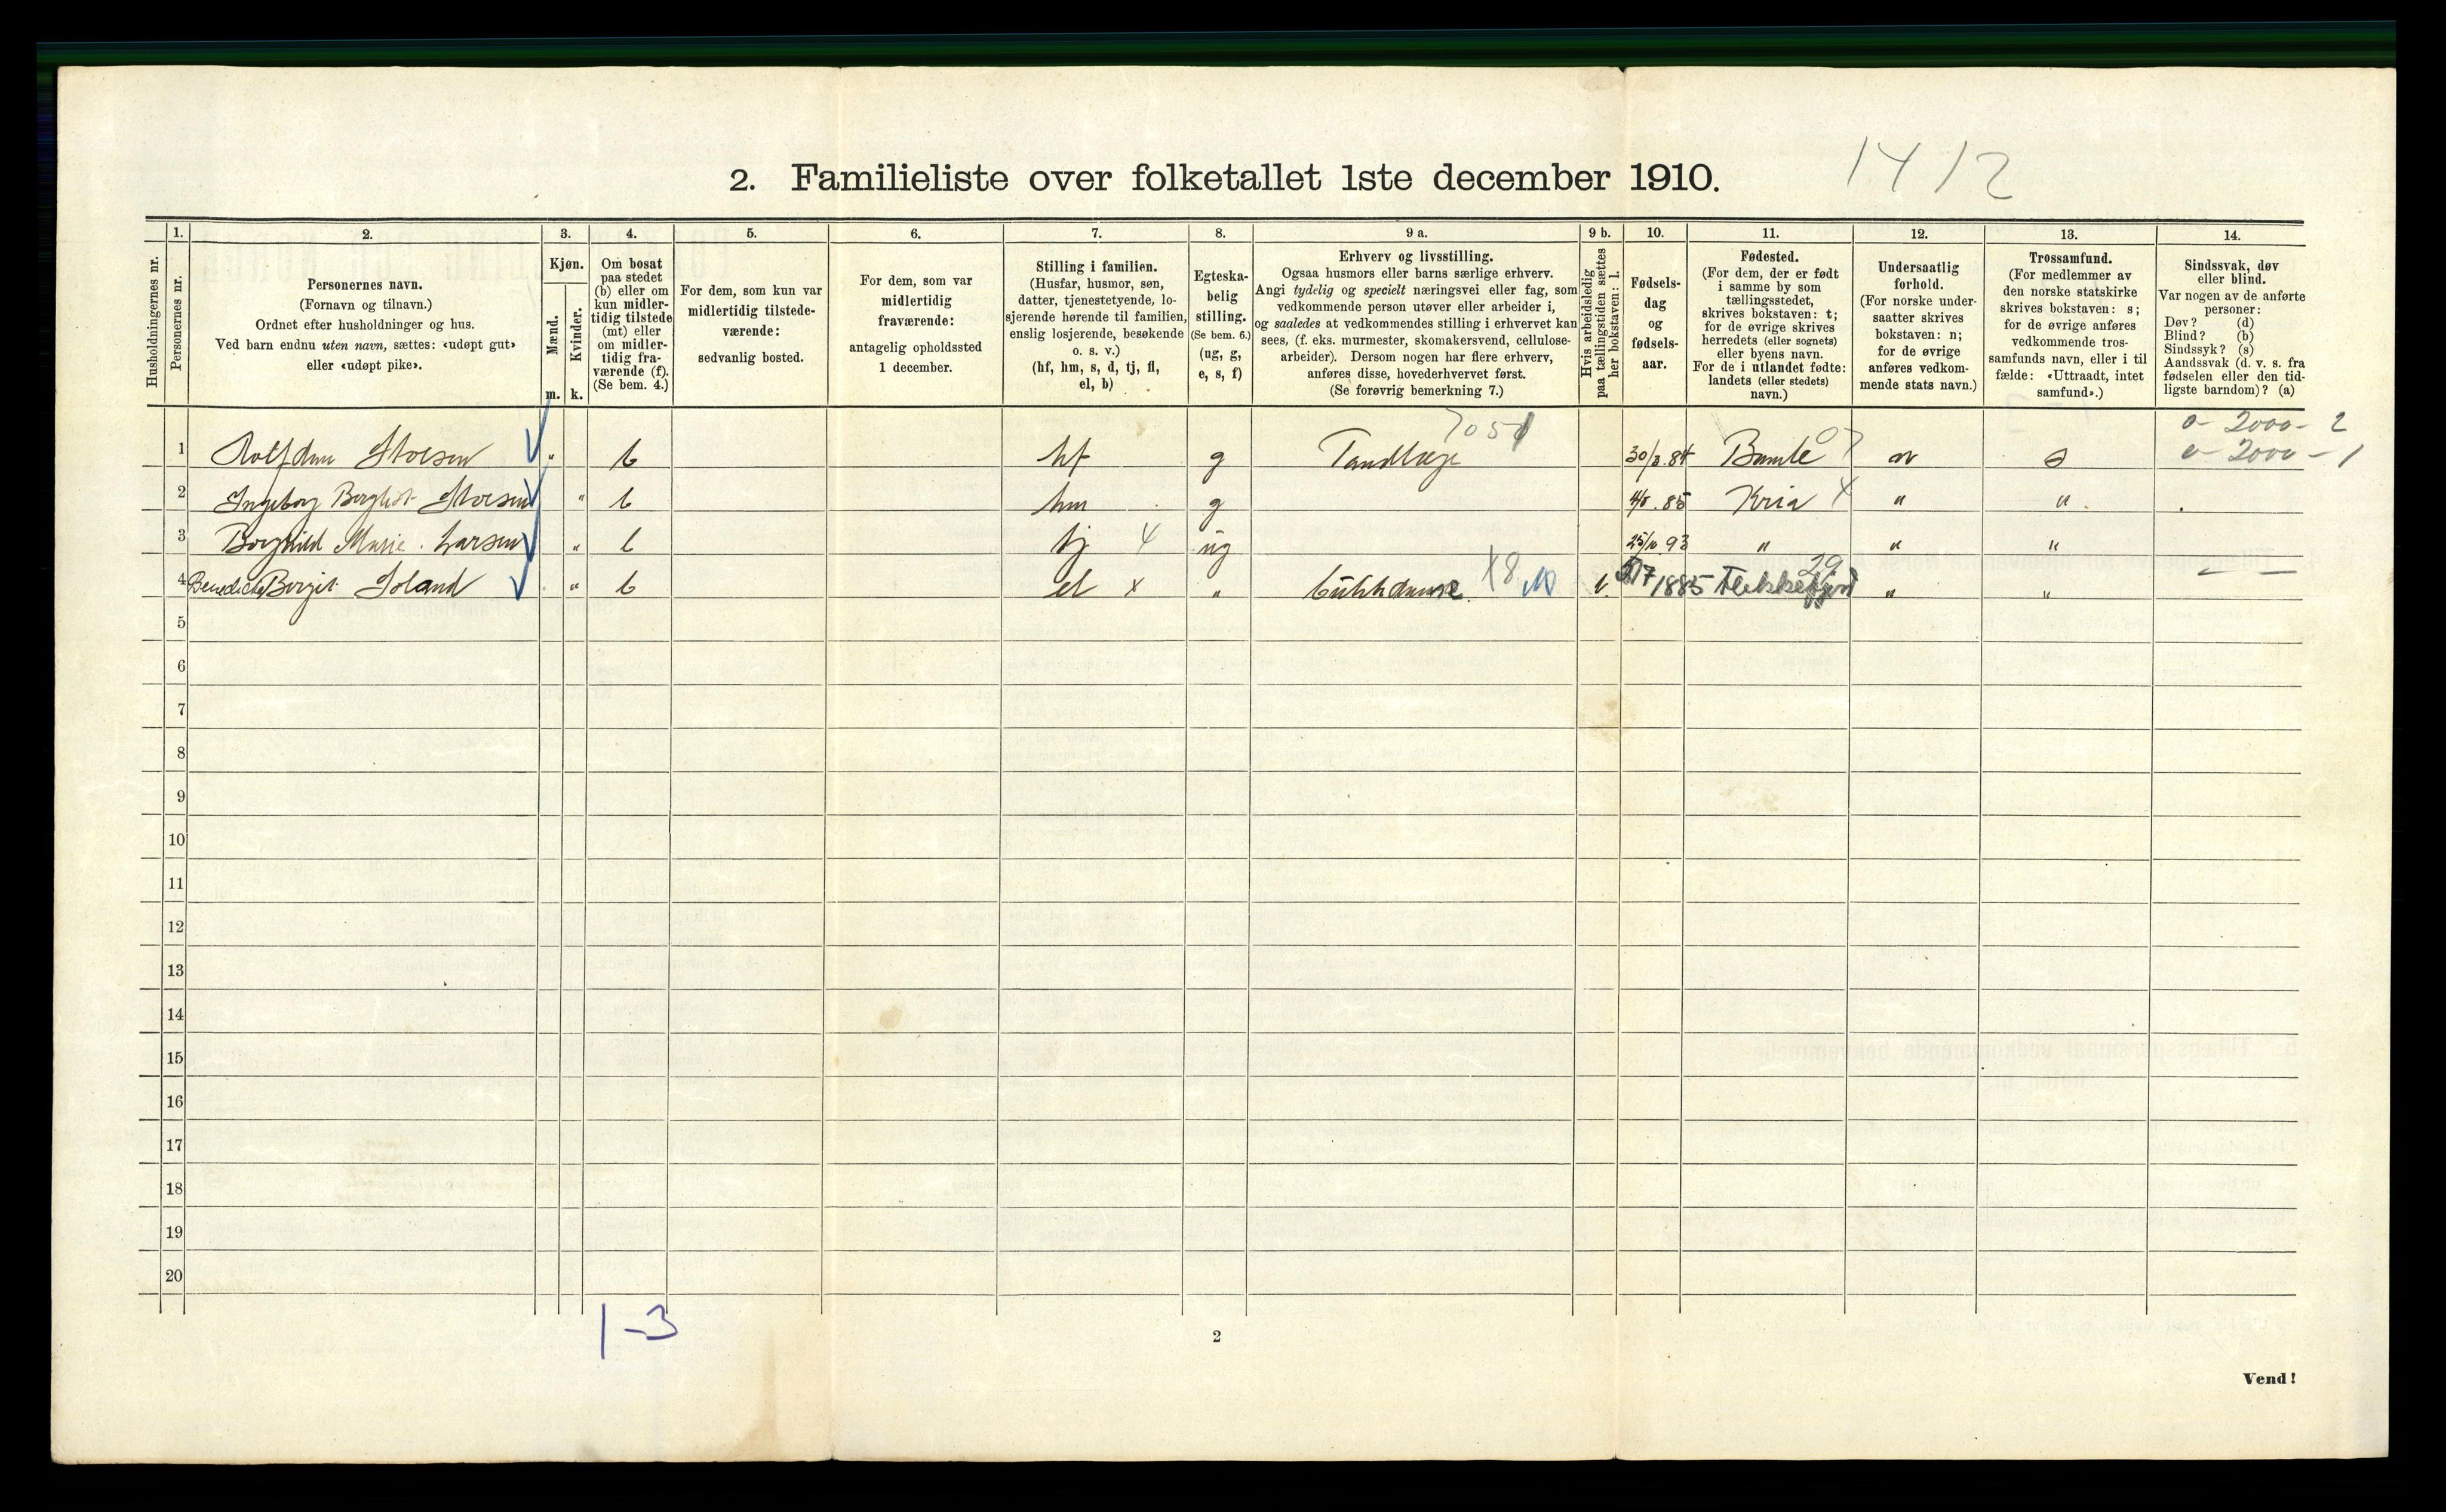 1412
2. Familieliste over folketallet 1ste december 1910.
Husholdningernes nr.
1.
Personernes nr.
2.
Personernes navn.
(Fornavn og tilnavn.)
Ordnet efter husholdninger og hus.
Ved barn endnu uten navn, sættes: «udøpt gut»
eller «udøpt pike».
3.
Kjøn.
Mænd.
Kvinder.
m. k.
4.
Om bosat
paa stedet
(b) eller om
kun midler-
tidig tilstede
(mt) eller
om midler-
tidig fra-
værende (f).
(Se bem. 4.)
5.
For dem, som kun var
midlertidig tilstede-
værende:
sedvanlig bosted.
6.
For dem, som var
midlertidig
fraværende:
antagelig opholdssted
1 december.
7.
Stilling i familien.
(Husfar, husmor, søn,
datter, tjenestetyende, lo-
sjerende hørende til familien,
enslig losjerende, besøkende
o. s. v.)
(hf, hm, s, d, tj, fl,
el, b)
8.
Egteska-
belig
stilling.
(Se bem. 6.)
(ug, g,
e, s, f)
9 a.
Erhverv og livsstilling.
Ogsaa husmors eller barns særlige erhverv.
Angi tydelig og specielt næringsvei eller fag, som
vedkommende person utøver eller arbeider i,
og saaledes at vedkommendes stilling i erhvervet kan
sees, (f. eks. murmester, skomakersvend, cellulose-
arbeider). Dersom nogen har flere erhverv,
anføres disse, hovederhvervet først.
(Se forøvrig bemerkning 7.)
9 b.
Hvis arbeidsledig
paa tællingstiden sættes
her bokstaven: l.
10.
Fødsels-
dag
og
fødsels-
aar.
11.
Fødested.
(For dem, der er født
i samme by som
tællingsstedet,
skrives bokstaven: t;
for de øvrige skrives
herredets (eller sognets)
eller byens navn.
For de i utlandet fødte:
landets (eller stedets)
navn.)
12.
Undersaatlig
forhold.
(For norske under-
saatter skrives
bokstaven: n;
for de øvrige
anføres vedkom-
mende stats navn.)
13.
Trossamfund.
(For medlemmer av
den norske statskirke
skrives bokstaven: s;
for de øvrige anføres
vedkommende tros-
samfunds navn, eller i til
fælde: «Uttraadt, intet
samfund».)
14.
Sindssvak, døv
eller blind.
Var nogen av de anførte
personer:
Døv? (d)
Blind? (b)
Sindssyk? (s)
Aandssvak (d. v. s. fra
fødselen eller den tid-
ligste barndom)? (a)
2000 - 2
1 Storsen " b hf g Tandlæge Bamle 07 n s 2000 - 1
2 Ingeborg Storsen " b hm g 85 Kria X " "
3 Borghild Marie Larsen " b tj 4 ug 25/10 93 " " "
4 Borgit Ioland " b el x " X8 1885 Flekkefjord 29 " "
5
6
7
8
9
10
11
12
13
14
15
16
17
18
19
20
1-3
2
Vend!